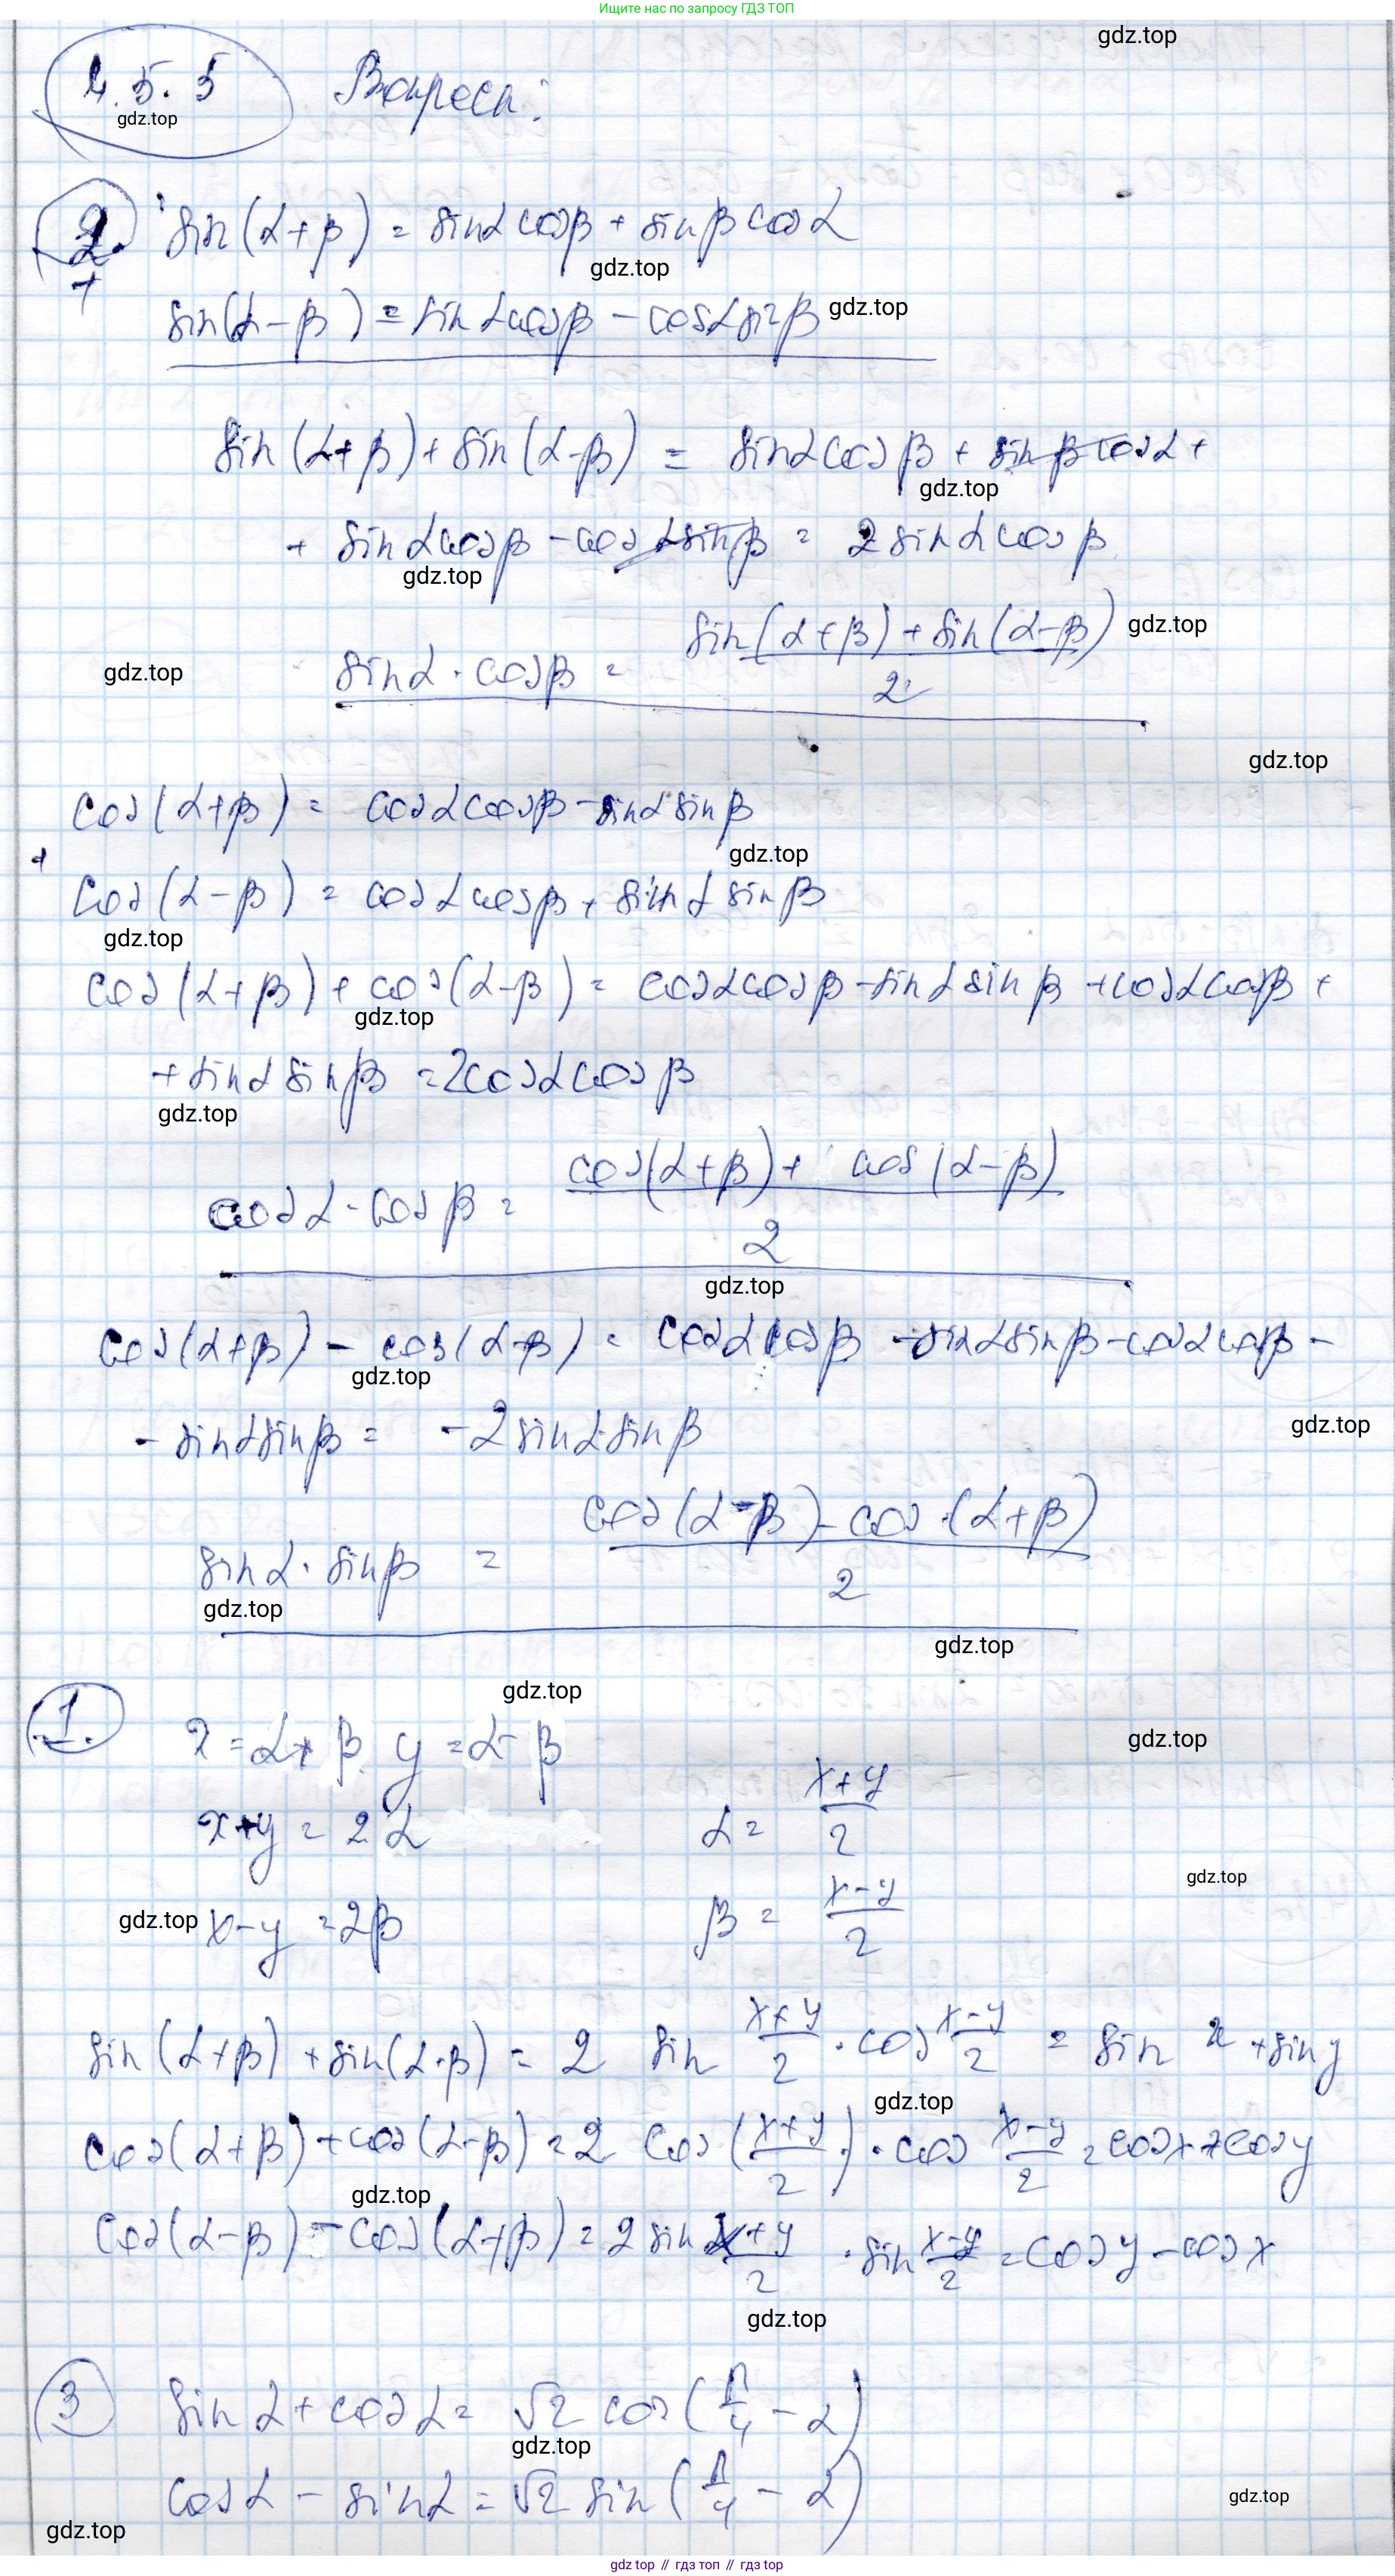 Ищите нас по запросу ГДЗ ТОП
gdz.top
4.5.5 Вопросы:
gdz.top
2. sin(α+β) = sinα cosβ + sinβ cosα
gdz.top
+
sin(α-β) = sinα cosβ - cosα sinβ gdz.top
sin(α+β) + sin(α-β) = sinα cosβ + sinβ cosα +
gdz.top
+ sinα cosβ - cosα sinβ = 2 sinα cosβ
gdz.top
gdz.top sinα · cosβ = (sin(α+β) + sin(α-β))/2 gdz.top
gdz.top
cos(α+β) = cosα cosβ - sinα sinβ
+ gdz.top
cos(α-β) = cosα cosβ + sinα sinβ
gdz.top
cos(α+β) + cos(α-β) = cosα cosβ - sinα sinβ + cosα cosβ +
gdz.top
+ sinα sinβ = 2cosα cosβ
gdz.top
cosα · cosβ = (cos(α+β) + cos(α-β))/2
gdz.top
cos(α+β) - cos(α-β) = cosα cosβ - sinα sinβ - cosα cosβ -
gdz.top
gdz.top
- sinα sinβ = -2 sinα sinβ
sinα · sinβ = (cos(α-β) - cos(α+β))/2
gdz.top
gdz.top
gdz.top
1. x = α+β y = α-β
gdz.top
x+y = 2α α = (x+y)/2
gdz.top
gdz.top x-y = 2β β = (x-y)/2
sin(α+β) + sin(α-β) = 2 sin (x+y)/2 · cos (x-y)/2 = sin x + sin y
gdz.top
cos(α+β) + cos(α-β) = 2 cos((x+y)/2) · cos (x-y)/2 = cos x + cos y
gdz.top
cos(α-β) - cos(α+β) = 2 sin (x+y)/2 · sin (x-y)/2 = cos y - cos x
gdz.top
3 sinα + cosα = √2 cos(π/4 - α)
gdz.top
cosα - sinα = √2 sin(π/4 - α)
gdz.top
gdz.top
gdz.top // гдз топ // гдз top